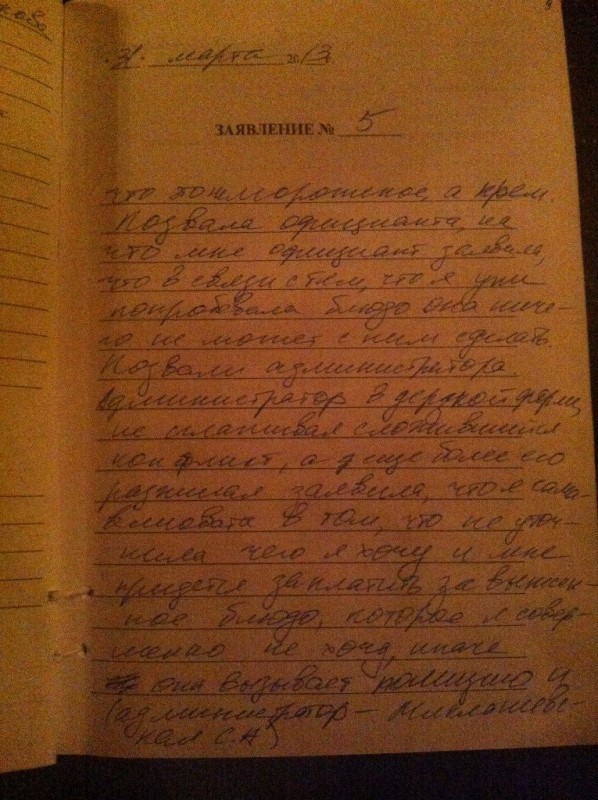 31. марта 2013
ЗАЯВЛЕНИЕ № 5
что мороженое, а крем.
Позвала официанта, на
что мне официант заявила,
что в связи с тем, что я уже
попробовала блюдо она ниче-
го не может с ним сделать.
Позвали администратора
Администратор в дерзкой форме
не сглаживая сложившийся
конфликт, а еще более его
разжигая заявила, что я сама
виновата в том, что не уточ-
нила чего я хочу и мне
придется заплатить за вынесен-
ное блюдо, которое я совер-
шенно не хочу, иначе
она вызывает полицию и
(администратор – Миклашевс-
кая С.А)